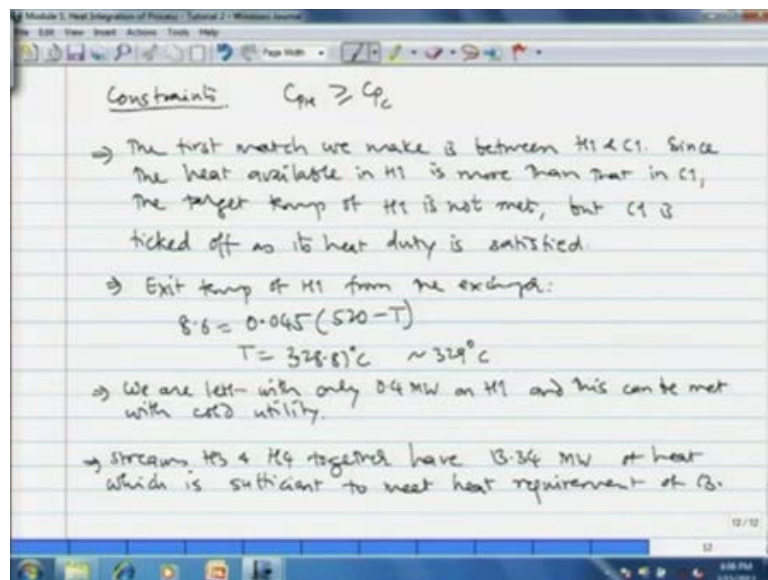 Module 5. Heat Integration of Process - Tutorial 2 - Windows Journal
File Edit View Insert Actions Tools Help
Page Width
Constraints CPH ≥ CPC
⇒ The first match we make is between H1 & C1. Since
the heat available in H1 is more than that in C1,
the target temp of H1 is not met, but C1 is
ticked off as its heat duty is satisfied.
⇒ Exit temp of H1 from the exchgr:
8.6 = 0.045 (520 - T)
T = 328.8)°C ~ 329°C
⇒ We are left with only 0.4 MW on H1 and this can be met
with cold utility.
→ Streams H3 & H4 together have 13.34 MW of heat
which is sufficient to meet heat requirement of C3.
12 / 12
12